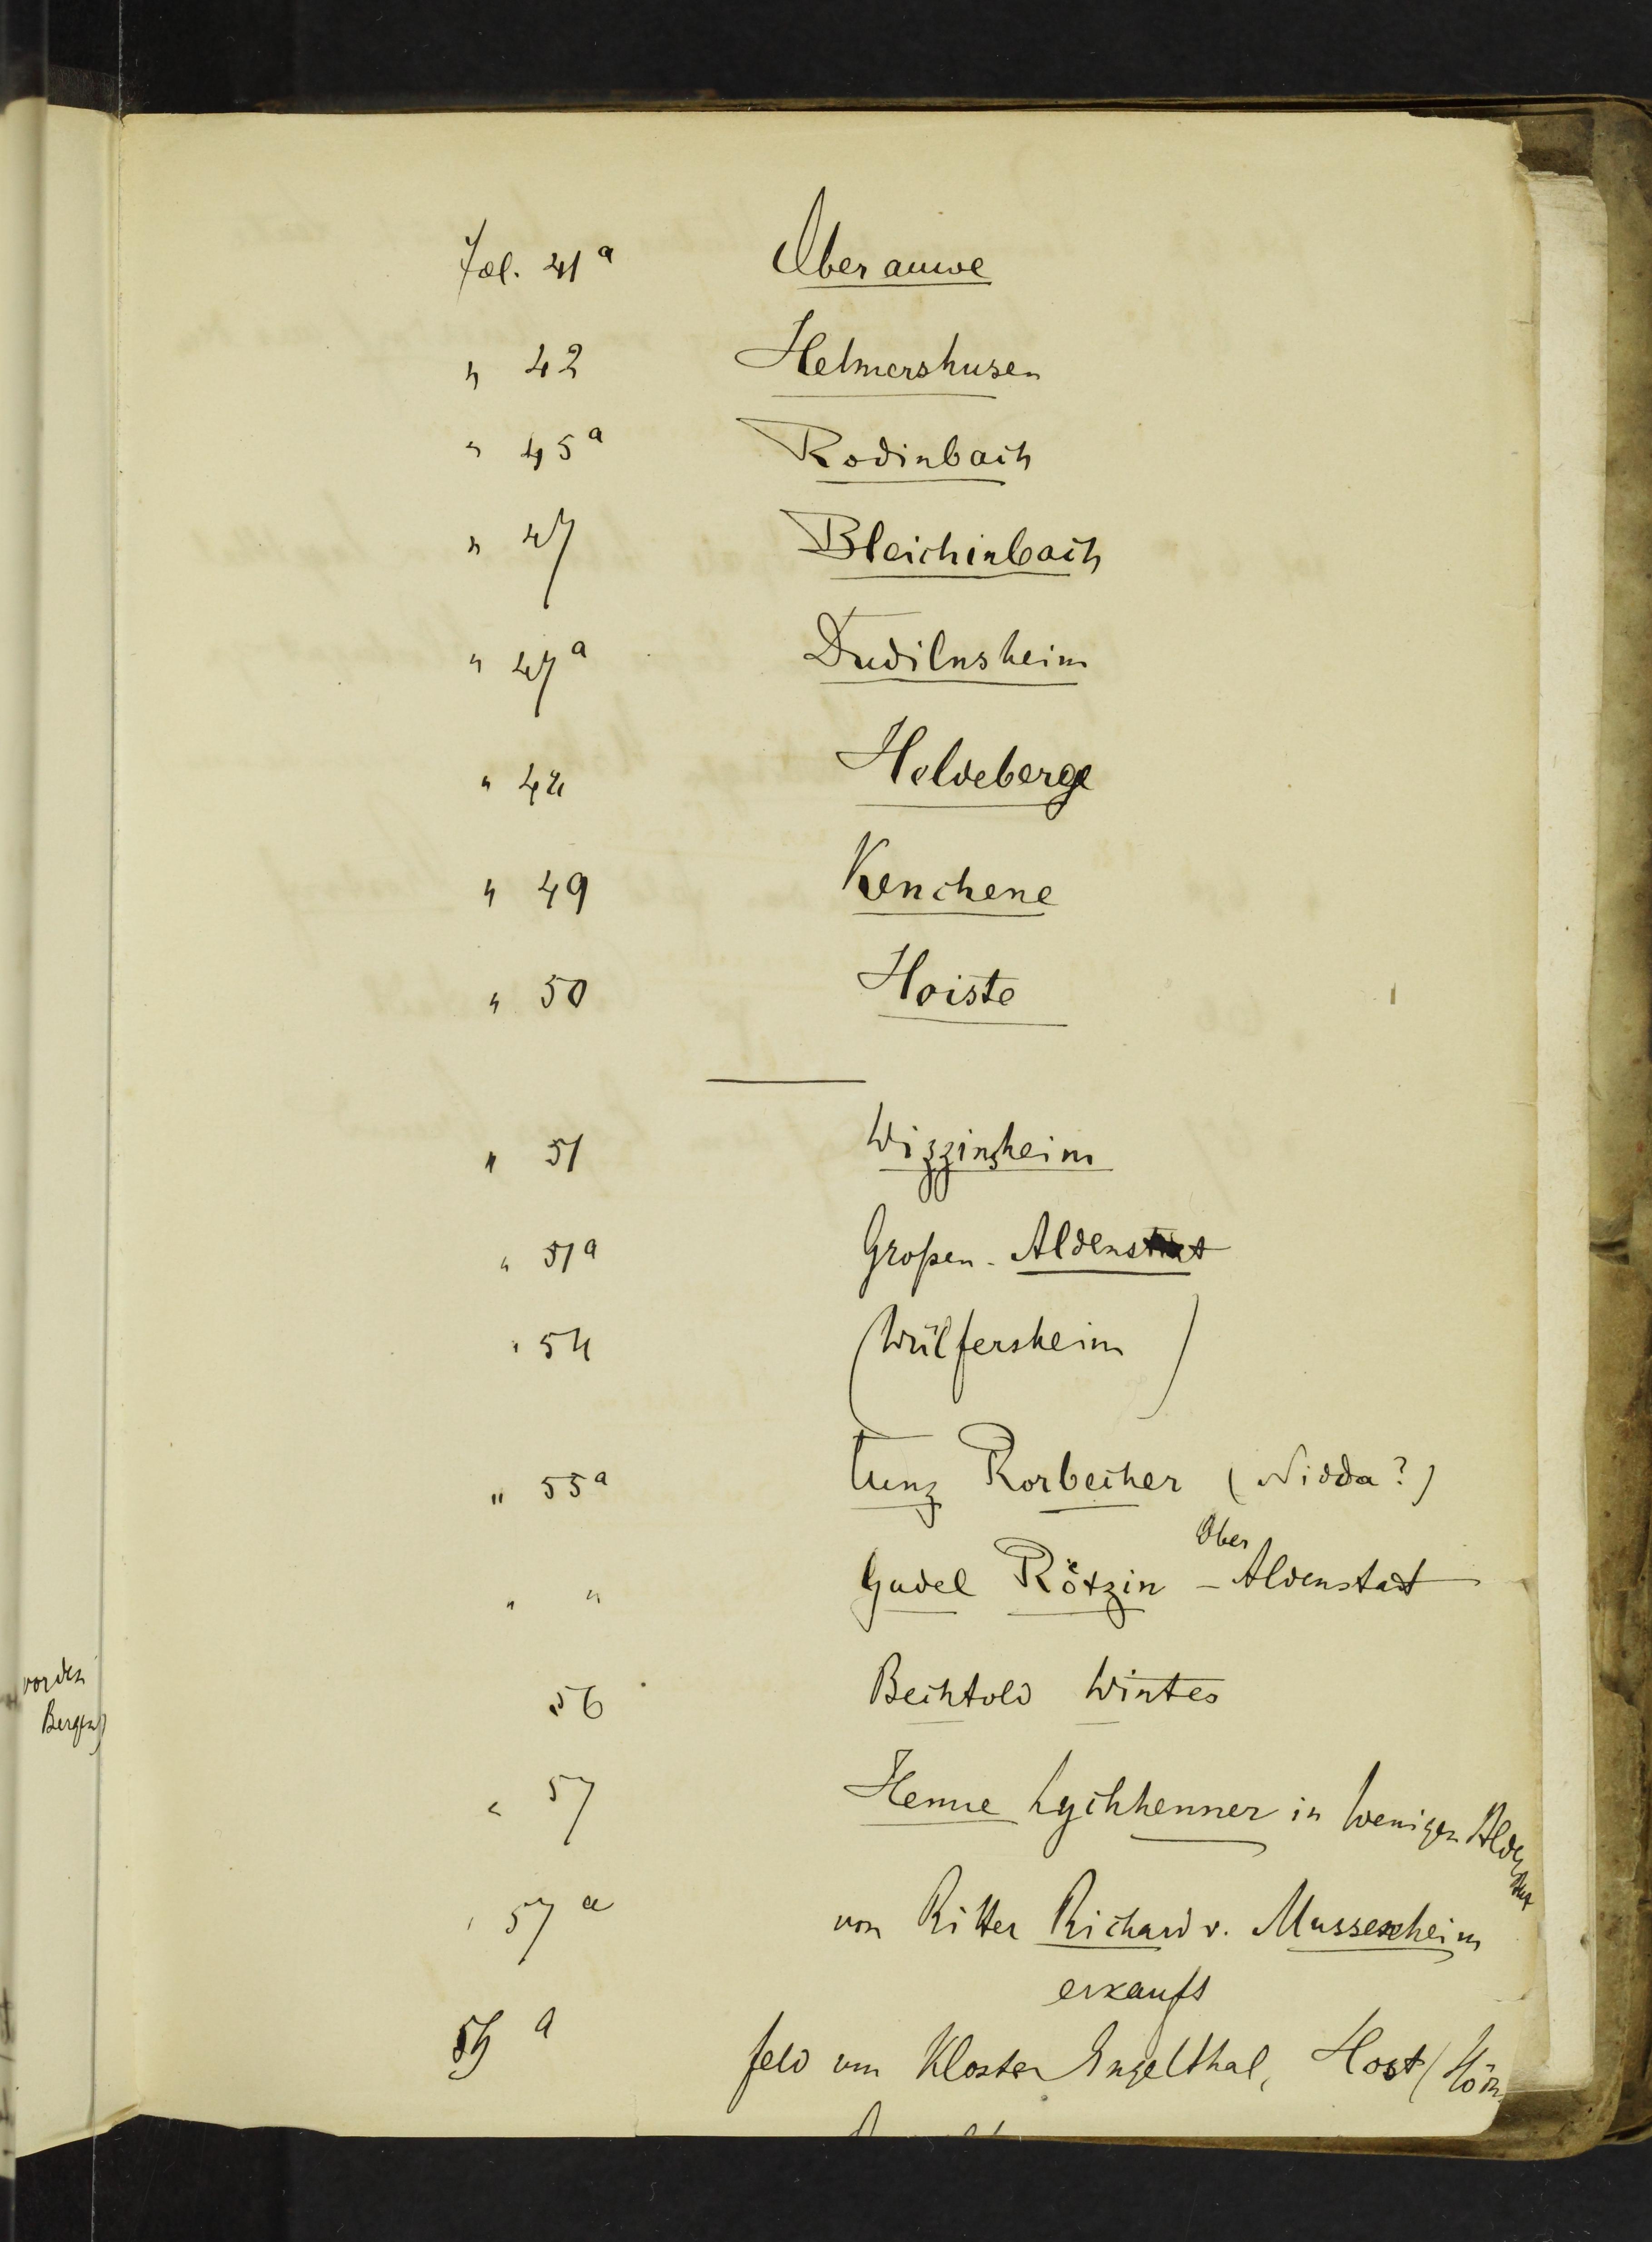 Fol. 41a Oberauwe
" 42 Helmershusen
" 45a Rodinbach
" 47 Bleichinbach
" 47a Dudilnsheim
" 48 Heldeberge
" 49 Kenchene
" 50 Hoiste
" 51 Wizzinsheim
" 51a Großen-Aldenstat
" 54 (Wülfersheim)
" 55a Cunz Rorbecher (Nidda?)
" " Gudel Rötzin - Ober Aldenstadt
" 56 Bechtold Winter
" 57 Henne Lychhenner in Wenigen Aldenstat
" 57a von Ritter Richard v. Mussenheim
erkauft
a Feld um Kloster Engelthal, Host (
vorden
Bergen)